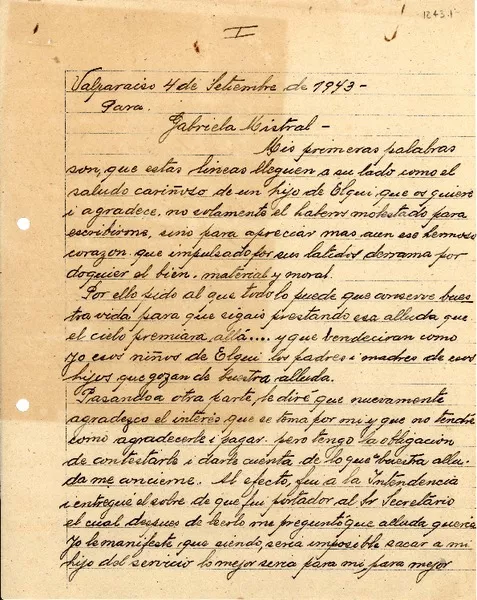 I
1243.1
Valparaiso 4 de Setiembre de 1943-
Para.
Gabriela Mistral-
Mis primeras palabras
son, que estas lineas lleguen a su lado como el
saludo cariñoso de un hijo de Elqui que os quiere
i agradece. no solamente el haberse molestado para
escribirme, sino para apreciar mas aun ese hermoso
corazon que impulsado por sus latidos derrama por
doquier el bien. material y moral.
Por ello pido al que todo lo puede que conserve bues
tra vida para que sigais prestando esa alluda que
el cielo premiara allá.... y que bendeciran como
yo esos niños de Elqui los padres i madres de esos
hijos que gozan de buestra alluda.
Pasando a otra parte, le diré que nuevamente
agradezco el interés que se toma por mi y que no tendre
como agradecerle i pagar. pero tengo la obligacion
de contestarle i darle cuenta de lo que buestra allu-
da me concierne. Al efecto, fui a la Intendencia
i entregué el sobre de que fui portador al Sr Secretario
el cual despues de leerlo me preguntó que alluda queria
yo le manifeste, que siendo, seria imposible sacar a mi
hijo del servicio lo mejor seria para mi para mejor